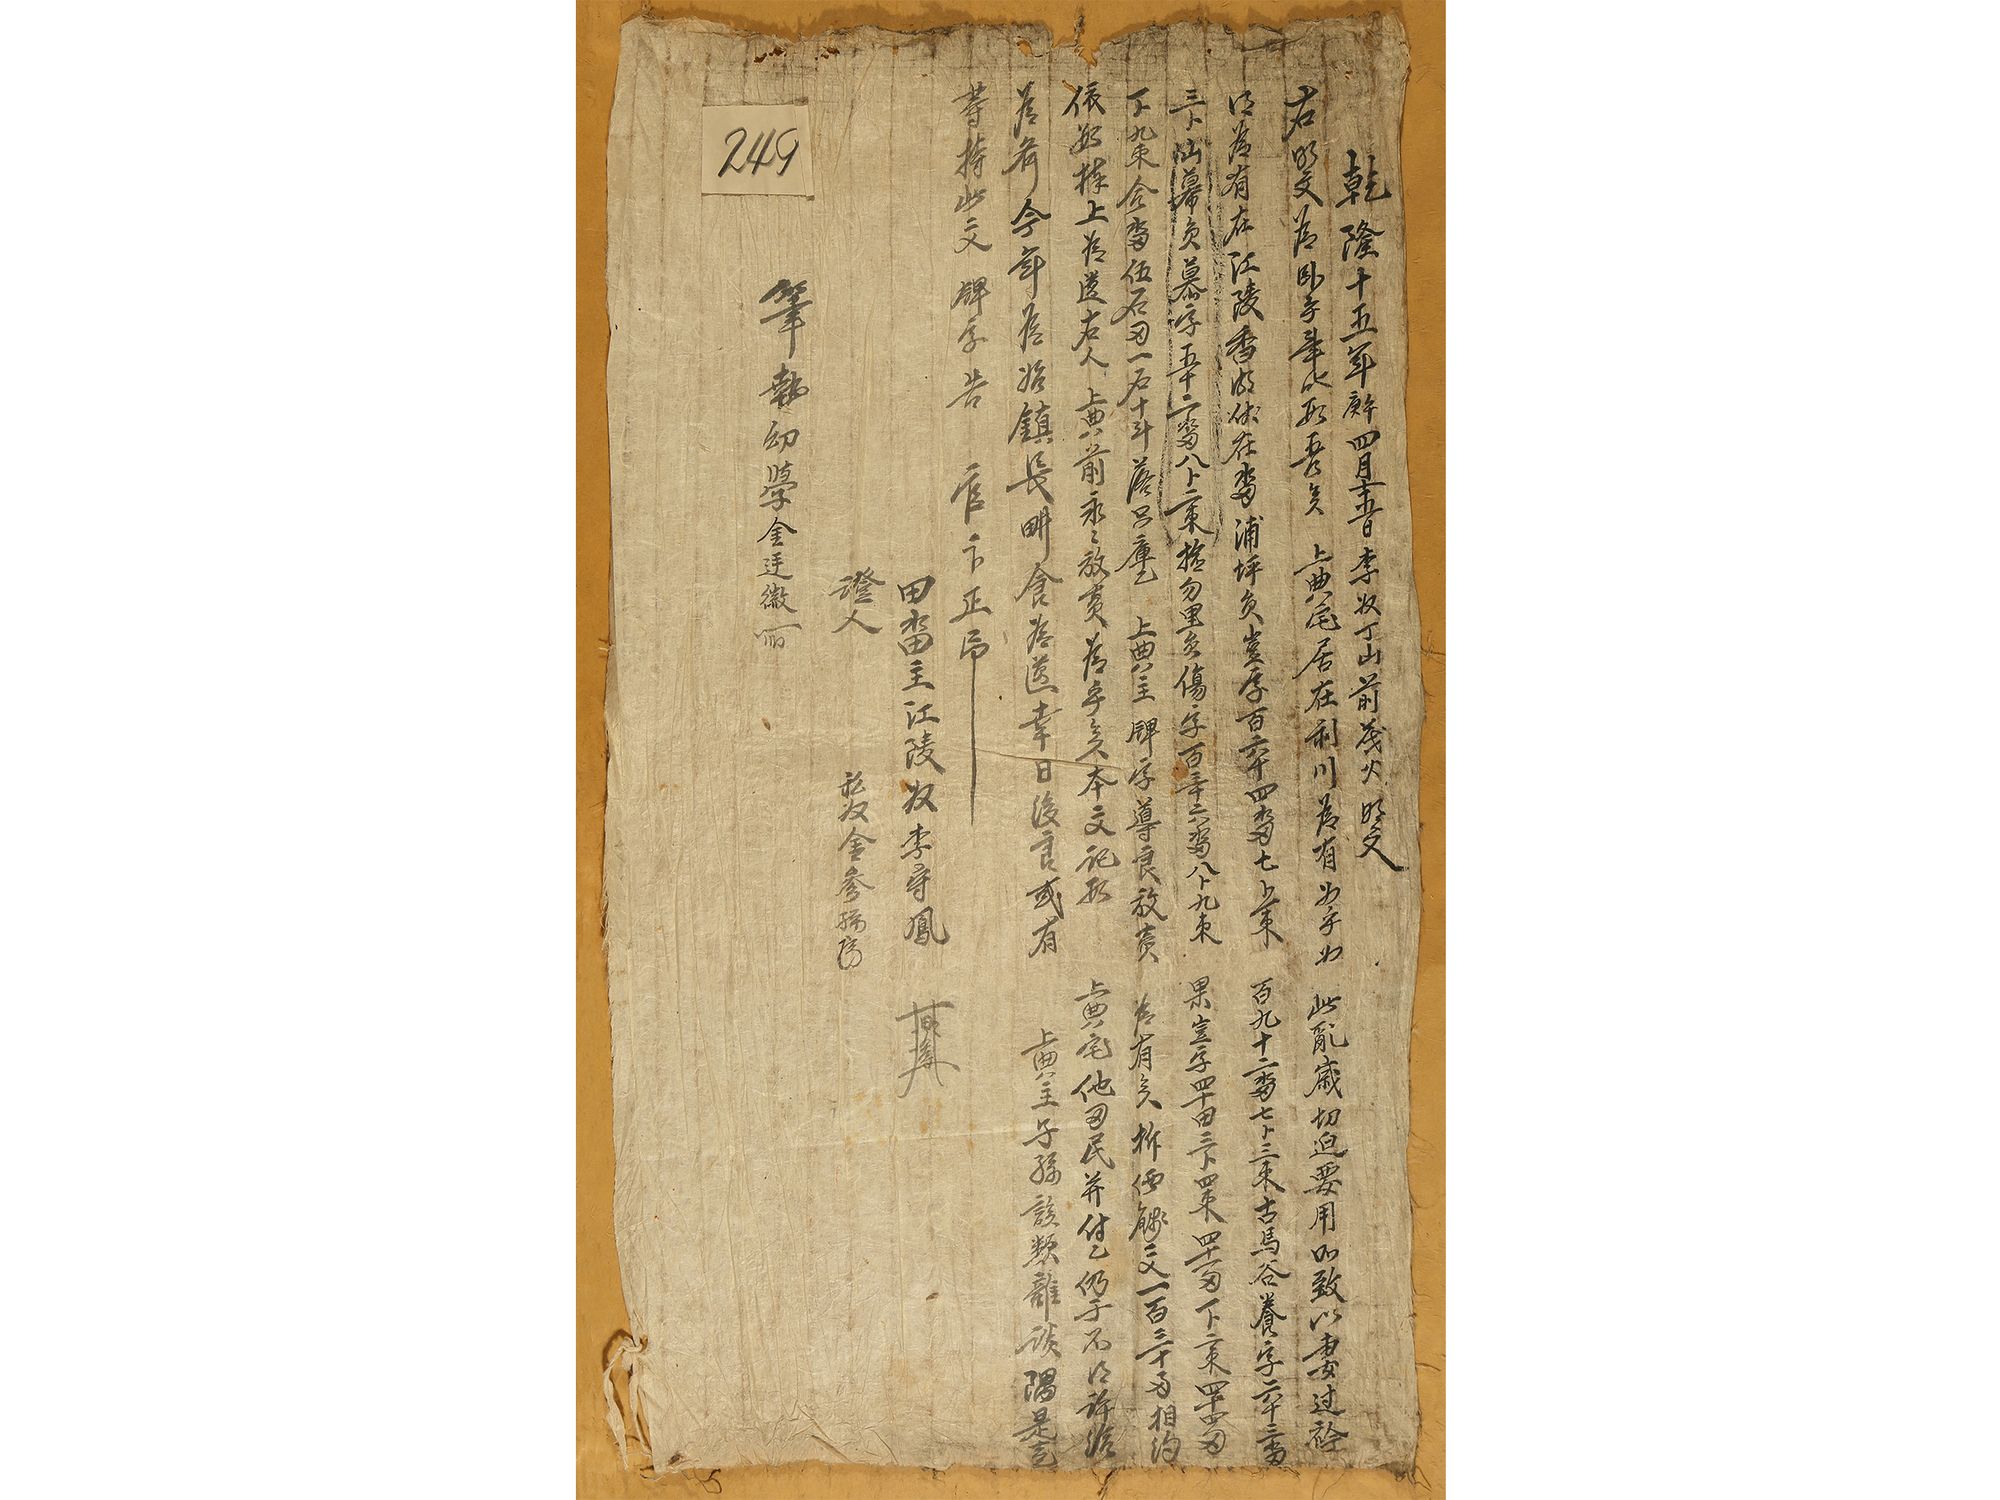 乾隆十五年庚午四月十五日李奴丁山前茂火明文
右明文爲臥乎事叱段吾矣上典宅居在利川爲有如乎如此亂歲切迫要用以致以妻過衿
得爲有在江陵香湖伏在畓浦坪員豈字百六十四畓七卜束百九十二畓七卜三束古馬谷養字六十二畓
三卜汕幕員慕字五十二畓八卜二束搶勿里員傷字百三十六畓八卜九束果豈字四十田三卜四束四十一畓一卜二束四十四畓
一卜九束合畓伍石田一石十斗落只庫乙上典主牌字導良放賣爲有矣折價錢文一百三十兩相約
依數捧上爲遣右人上典前永永放賣爲乎矣本文記段上典宅他田民幷付乙仍于不得許給
爲有今年爲始鎭長耕食爲遣幸日後良或有上典主子孫族類雜談隅是去
等持此文牌字告官卞正印
田畓主江陵奴李守鳳
證人私奴金參孫
筆執幼學金廷徽
249